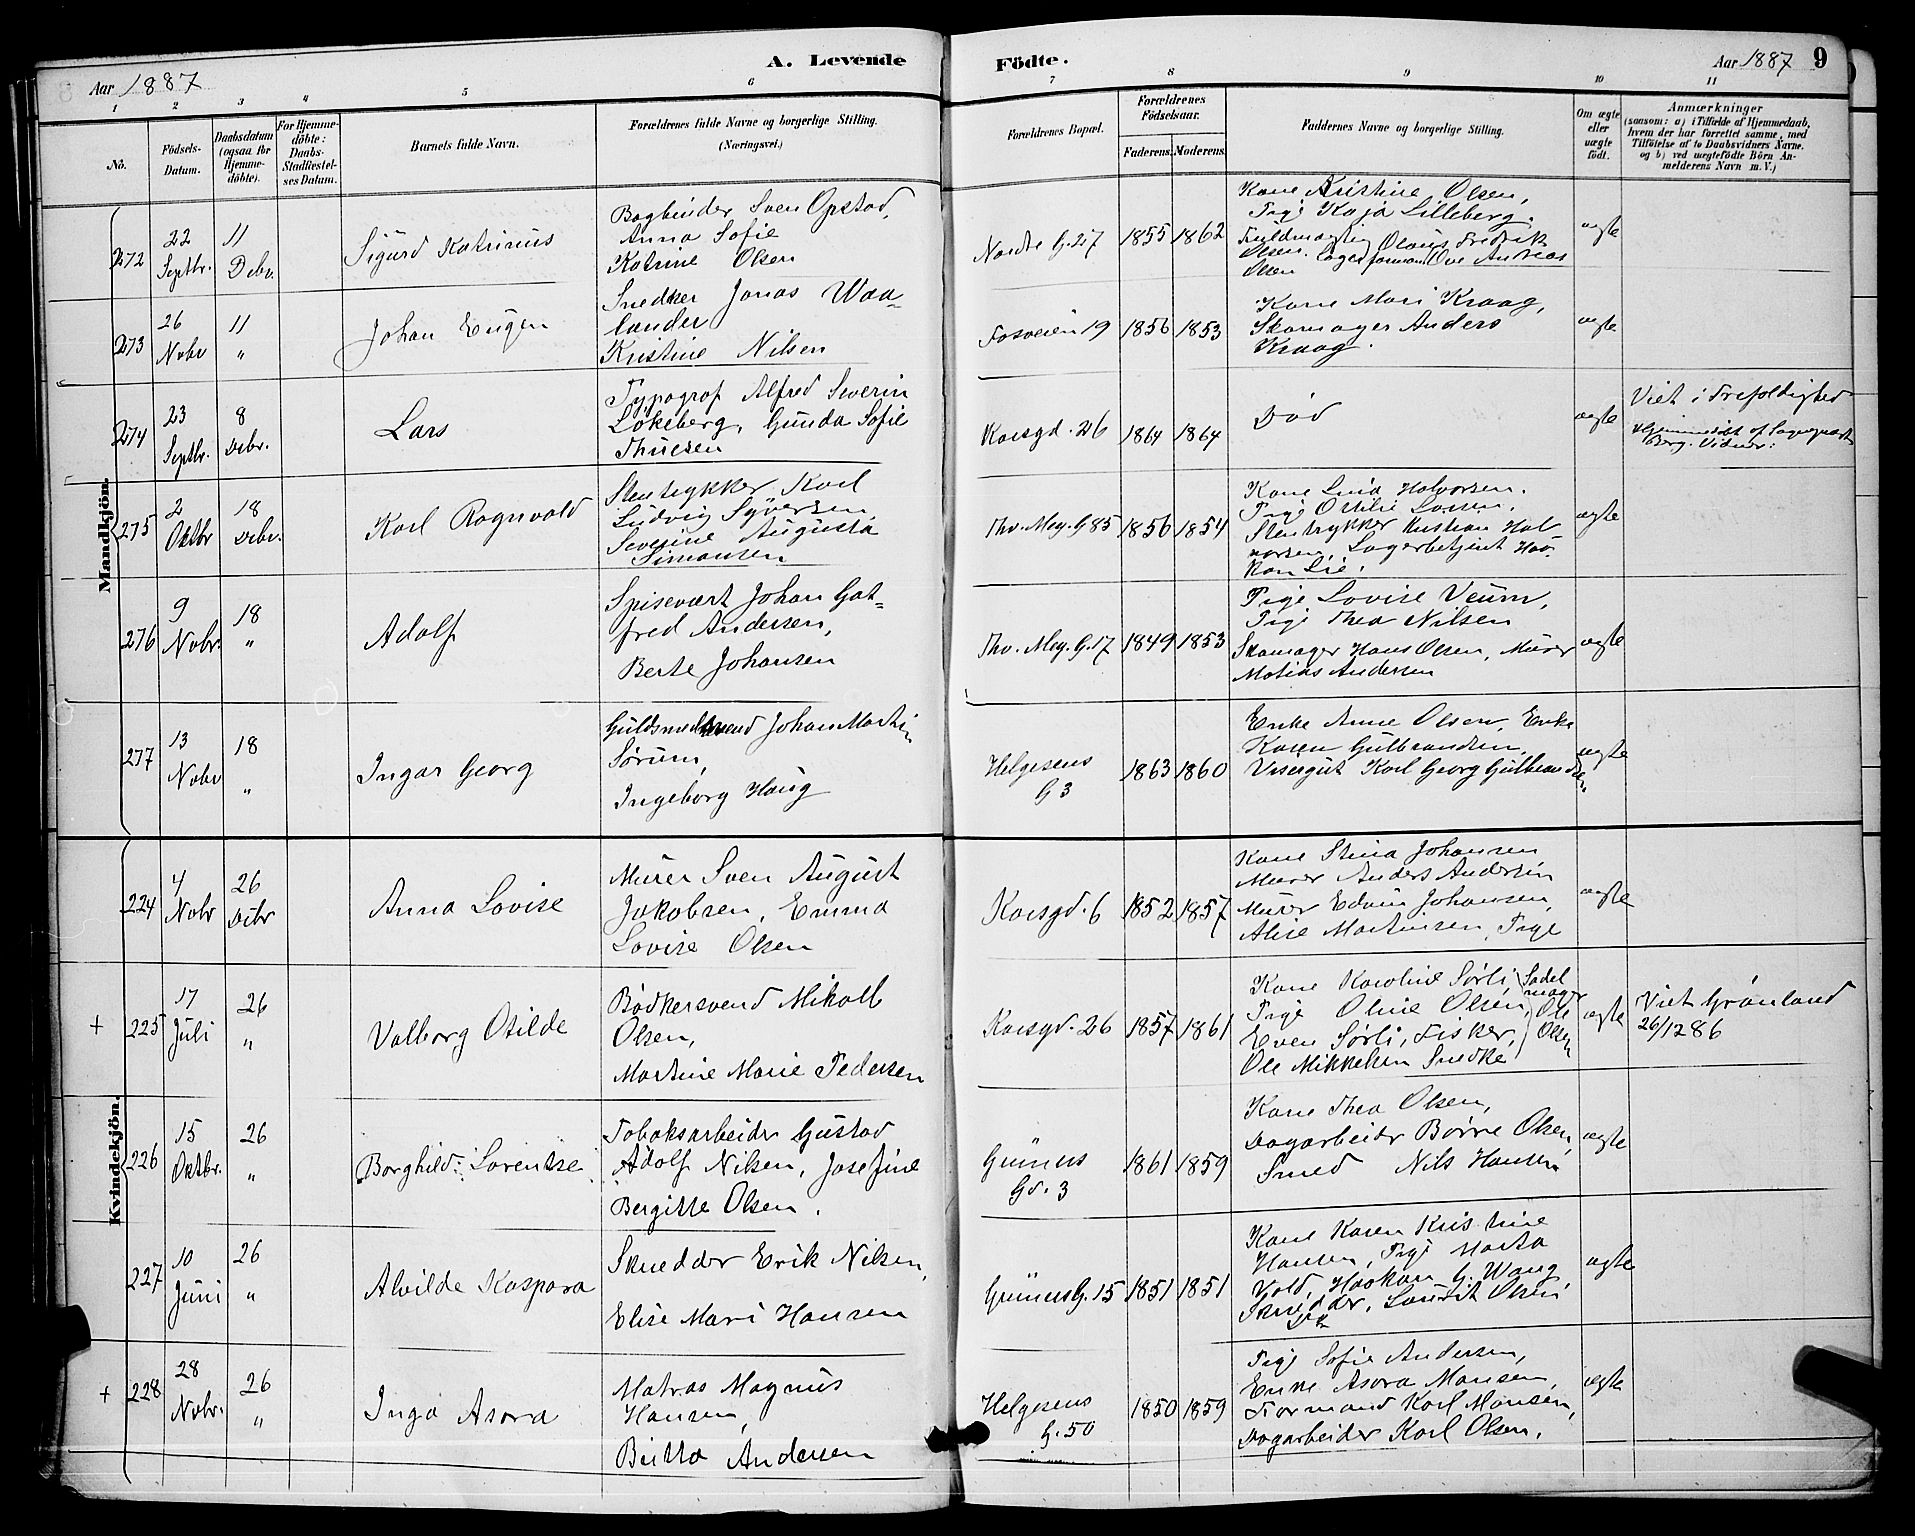 Aar 1887
A. Levende
Födte.
Aar 1887
9
1 2 3 4 5 6 7 8 9 10 11
No.
Födsels-
Datum.
Daabsdatum
(ogsaa for
Hjemme-
döbte).
For Hjemme-
döbte:
Daabs-
Stadfæstel-
ses Datum.
Barnets fulde Navn.
Forældrenes fulde Navne og borgerlige Stilling.
(Næringsvei.)
Forældrenes Bopæl.
Forældrenes
Födselsaar.
Faderens.
Moderens.
Faddernes Navne og borgerlige Stilling.
Om ægte
eller
uægte
födt.
Anmærkninger
(saasom: a) i Tilfælde af Hjemmedaab,
hvem der har forrettet samme, med
Tilföielse af to Daabsvidners Navne.
og b) ved uægtefödte Börn An-
melderens Navn m. V.)
Mandkjön.
272
22
Septbr.
11
Debr.
Sigurd Katrinus
Bogbinder Sven Opstad,
Anna Sofie
Katrine Olsen
Nordre G. 27
1855
1862
Kone Kristine Olsen,
Pige Kaja Lilleberg.
Fuldmægtig Olaus Fredrik
Olsen. Lagerformand Ove Andreas
Olsen
ægte
273
26
Nobr
11
"
Johan Eugen
Snedker Jonas Waa-
lander
Kristine Nilsen
Fosveien 19
1856
1853
Kone Mari Kraag,
Skomager Anders
Kraag.
ægte
274
23
Septbr.
8
Debr.
Lars
Typograf Alfred Severin
Løkeberg, Gunda Sofie
Thuesen
Korsgd. 26
1864
1864
Død
ægte
Viet i Trefoldighed
Hjemmedøbt af Sogneprest
Berg. Vidner:
275
2
Oktbr
18
Debr.
Karl Ragnvald
Stentrykker Karl
Ludvig Syversen
Severine Augusta
Simonsen
Thv. Mey. G 85
1856
1854
Kone Lina Halvorsen.
Pige Ottilie Larsen,
Stentrykker Kristian Hal
vorsen, Lagerbetjent Haa-
kon Lie.
ægte
276
9
Nobr.
18
"
Adolf
Spisevært Johan Got-
fred Andersen,
Berte Johansen
Thv. Mey. G. 17
1849
1853
Pige Lovise Veum,
Pige Thea Nilsen
Skomager Hans Olsen, Murer
Matias Andersen
ægte
277
13
Nobr
18
"
Ingar Georg
Guldsmedsvend Johan Martin
Sørum,
Ingeborg Haug
Helgesens
G 3
1863
1860
Enke Anne Olsen, Enke
Karen Gulbrandsen,
Visergut Karl Georg Gulbrandsen
ægte
Kvindekjön.
224
4
Nobr
26
Debr
Anna Lovise
Murer Sven August
Jakobsen, Emma
Lovise Olsen
Korsgd. 6
1852
1857
Kone Stina Johansen
Murer Anders Andersen
Murer Edvin Johansen,
Alise Martinsen, Pige
ægte
+
225
17
Juli
26
"
Valborg Otilde
Bødkersvend Mikall
Olsen,
Martine Marie Pedersen
Korsgd. 26
1857
1861
Kone Karoline Sørli,
Pige Oline Olsen
Even Sørli, Fisker,
Ole Mikkelsen Snedke
Sadel
mager
Ole
Olsen
ægte
Viet Grønland
26/12 86
226
15
Oktbr.
26
"
Borghild Lorentse
Tobaksarbeider Gustav
Adolf Nilsen, Josefine
Bergitte Olsen.
Gruners
Gd. 3
1861
1859
Kone Thea Olsen,
Dagarbeider Børre Olsen,
Smed Nils Hansen
ægte
227
10
Juni
26
"
Alvilde Kaspara
Skredder Erik Nilsen,
Elise Mari Hansen
Gruners G. 15
1851
1851
Kone Karen Kristine
Hansen, Pige Marta
Vold, Haakon G. Wang,
Skredder, Laurit Olsen
ægte
+
228
28
Nobr.
26
"
Inga Asora
Matros Magnus
Hansen,
Britta Andersen
Helgesens
G. 50
1850
1859
Pige Sofie Andersen,
Enke Asora Monsen,
Formand Karl Monsen,
Dagarbeider Karl Olsen.
ægte